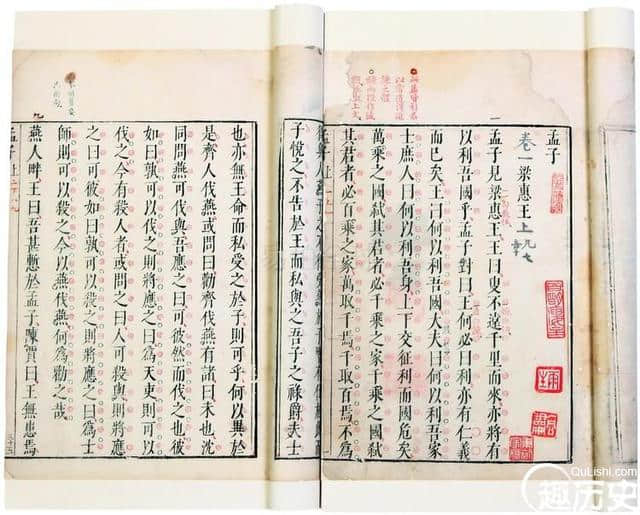 孟子
卷一梁惠王上
孟子見梁惠王王曰叟不遠千里而來亦將有
以利吾國乎孟子對曰王何必曰利亦有仁義
而已矣王曰何以利吾國大夫曰何以利吾家
士庶人曰何以利吾身上下交征利而國危矣
萬乘之國弒其君者必千乘之家千乘之國弒
其君者必百乘之家萬取千焉千取百焉不為
孟子
子悅之不告於王而私與之吾子之祿爵夫士
也亦無王命而私受之於子則可乎何以異於
是齊人伐燕或問曰勸齊伐燕有諸曰未也沈
同問燕可伐與吾應之曰可彼然而伐之也彼
如曰孰可以伐之則將應之曰為天吏則可以
伐之今有殺人者或問之曰人可殺與則將應
之曰可彼如曰孰可以殺之則將應之曰為士
師則可以殺之今以燕伐燕何為勸之哉
燕人畔王曰吾甚慚於孟子陳賈曰王無患焉
孟子
QuLishi.com
趣历史